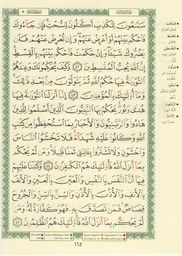 سَمَّٰعُونَ لِلْكَذِبِ أَكَّٰلُونَ لِلسُّحْتِ فَإِن جَآءُوكَ
فَٱحْكُم بَيْنَهُمْ أَوْ أَعْرِضْ عَنْهُمْ وَإِن تُعْرِضْ عَنْهُمْ فَلَن
يَضُرُّوكَ شَيْـًٔا وَإِنْ حَكَمْتَ فَٱحْكُم بَيْنَهُم بِٱلْقِسْطِ
إِنَّ ٱللَّهَ يُحِبُّ ٱلْمُقْسِطِينَ ٤٢ وَكَيْفَ يُحَكِّمُونَكَ وَعِندَهُمُ
ٱلتَّوْرَىٰةُ فِيهَا حُكْمُ ٱللَّهِ ثُمَّ يَتَوَلَّوْنَ مِنۢ بَعْدِ ذَٰلِكَ
وَمَآ أُو۟لَٰٓئِكَ بِٱلْمُؤْمِنِينَ ٤٣ إِنَّآ أَنزَلْنَا ٱلتَّوْرَىٰةَ فِيهَا
هُدًى وَنُورٌ يَحْكُمُ بِهَا ٱلنَّبِيُّونَ ٱلَّذِينَ أَسْلَمُوا۟ لِلَّذِينَ
هَادُوا۟ وَٱلرَّبَّٰنِيُّونَ وَٱلْأَحْبَارُ بِمَا ٱسْتُحْفِظُوا۟ مِن كِتَٰبِ
ٱللَّهِ وَكَانُوا۟ عَلَيْهِ شُهَدَآءَ فَلَا تَخْشَوُا۟ ٱلنَّاسَ
وَٱخْشَوْنِ وَلَا تَشْتَرُوا۟ بِـَٔايَٰتِى ثَمَنًا قَلِيلًا وَمَن لَّمْ يَحْكُم
بِمَآ أَنزَلَ ٱللَّهُ فَأُو۟لَٰٓئِكَ هُمُ ٱلْكَٰفِرُونَ ٤٤ وَكَتَبْنَا عَلَيْهِمْ
فِيهَآ أَنَّ ٱلنَّفْسَ بِٱلنَّفْسِ وَٱلْعَيْنَ بِٱلْعَيْنِ وَٱلْأَنفَ
بِٱلْأَنفِ وَٱلْأُذُنَ بِٱلْأُذُنِ وَٱلسِّنَّ بِٱلسِّنِّ وَٱلْجُرُوحَ
قِصَاصٌ فَمَن تَصَدَّقَ بِهِۦ فَهُوَ كَفَّارَةٌ لَّهُۥ وَمَن
لَّمْ يَحْكُم بِمَآ أَنزَلَ ٱللَّهُ فَأُو۟لَٰٓئِكَ هُمُ ٱلظَّٰلِمُونَ ٤٥
١١٥